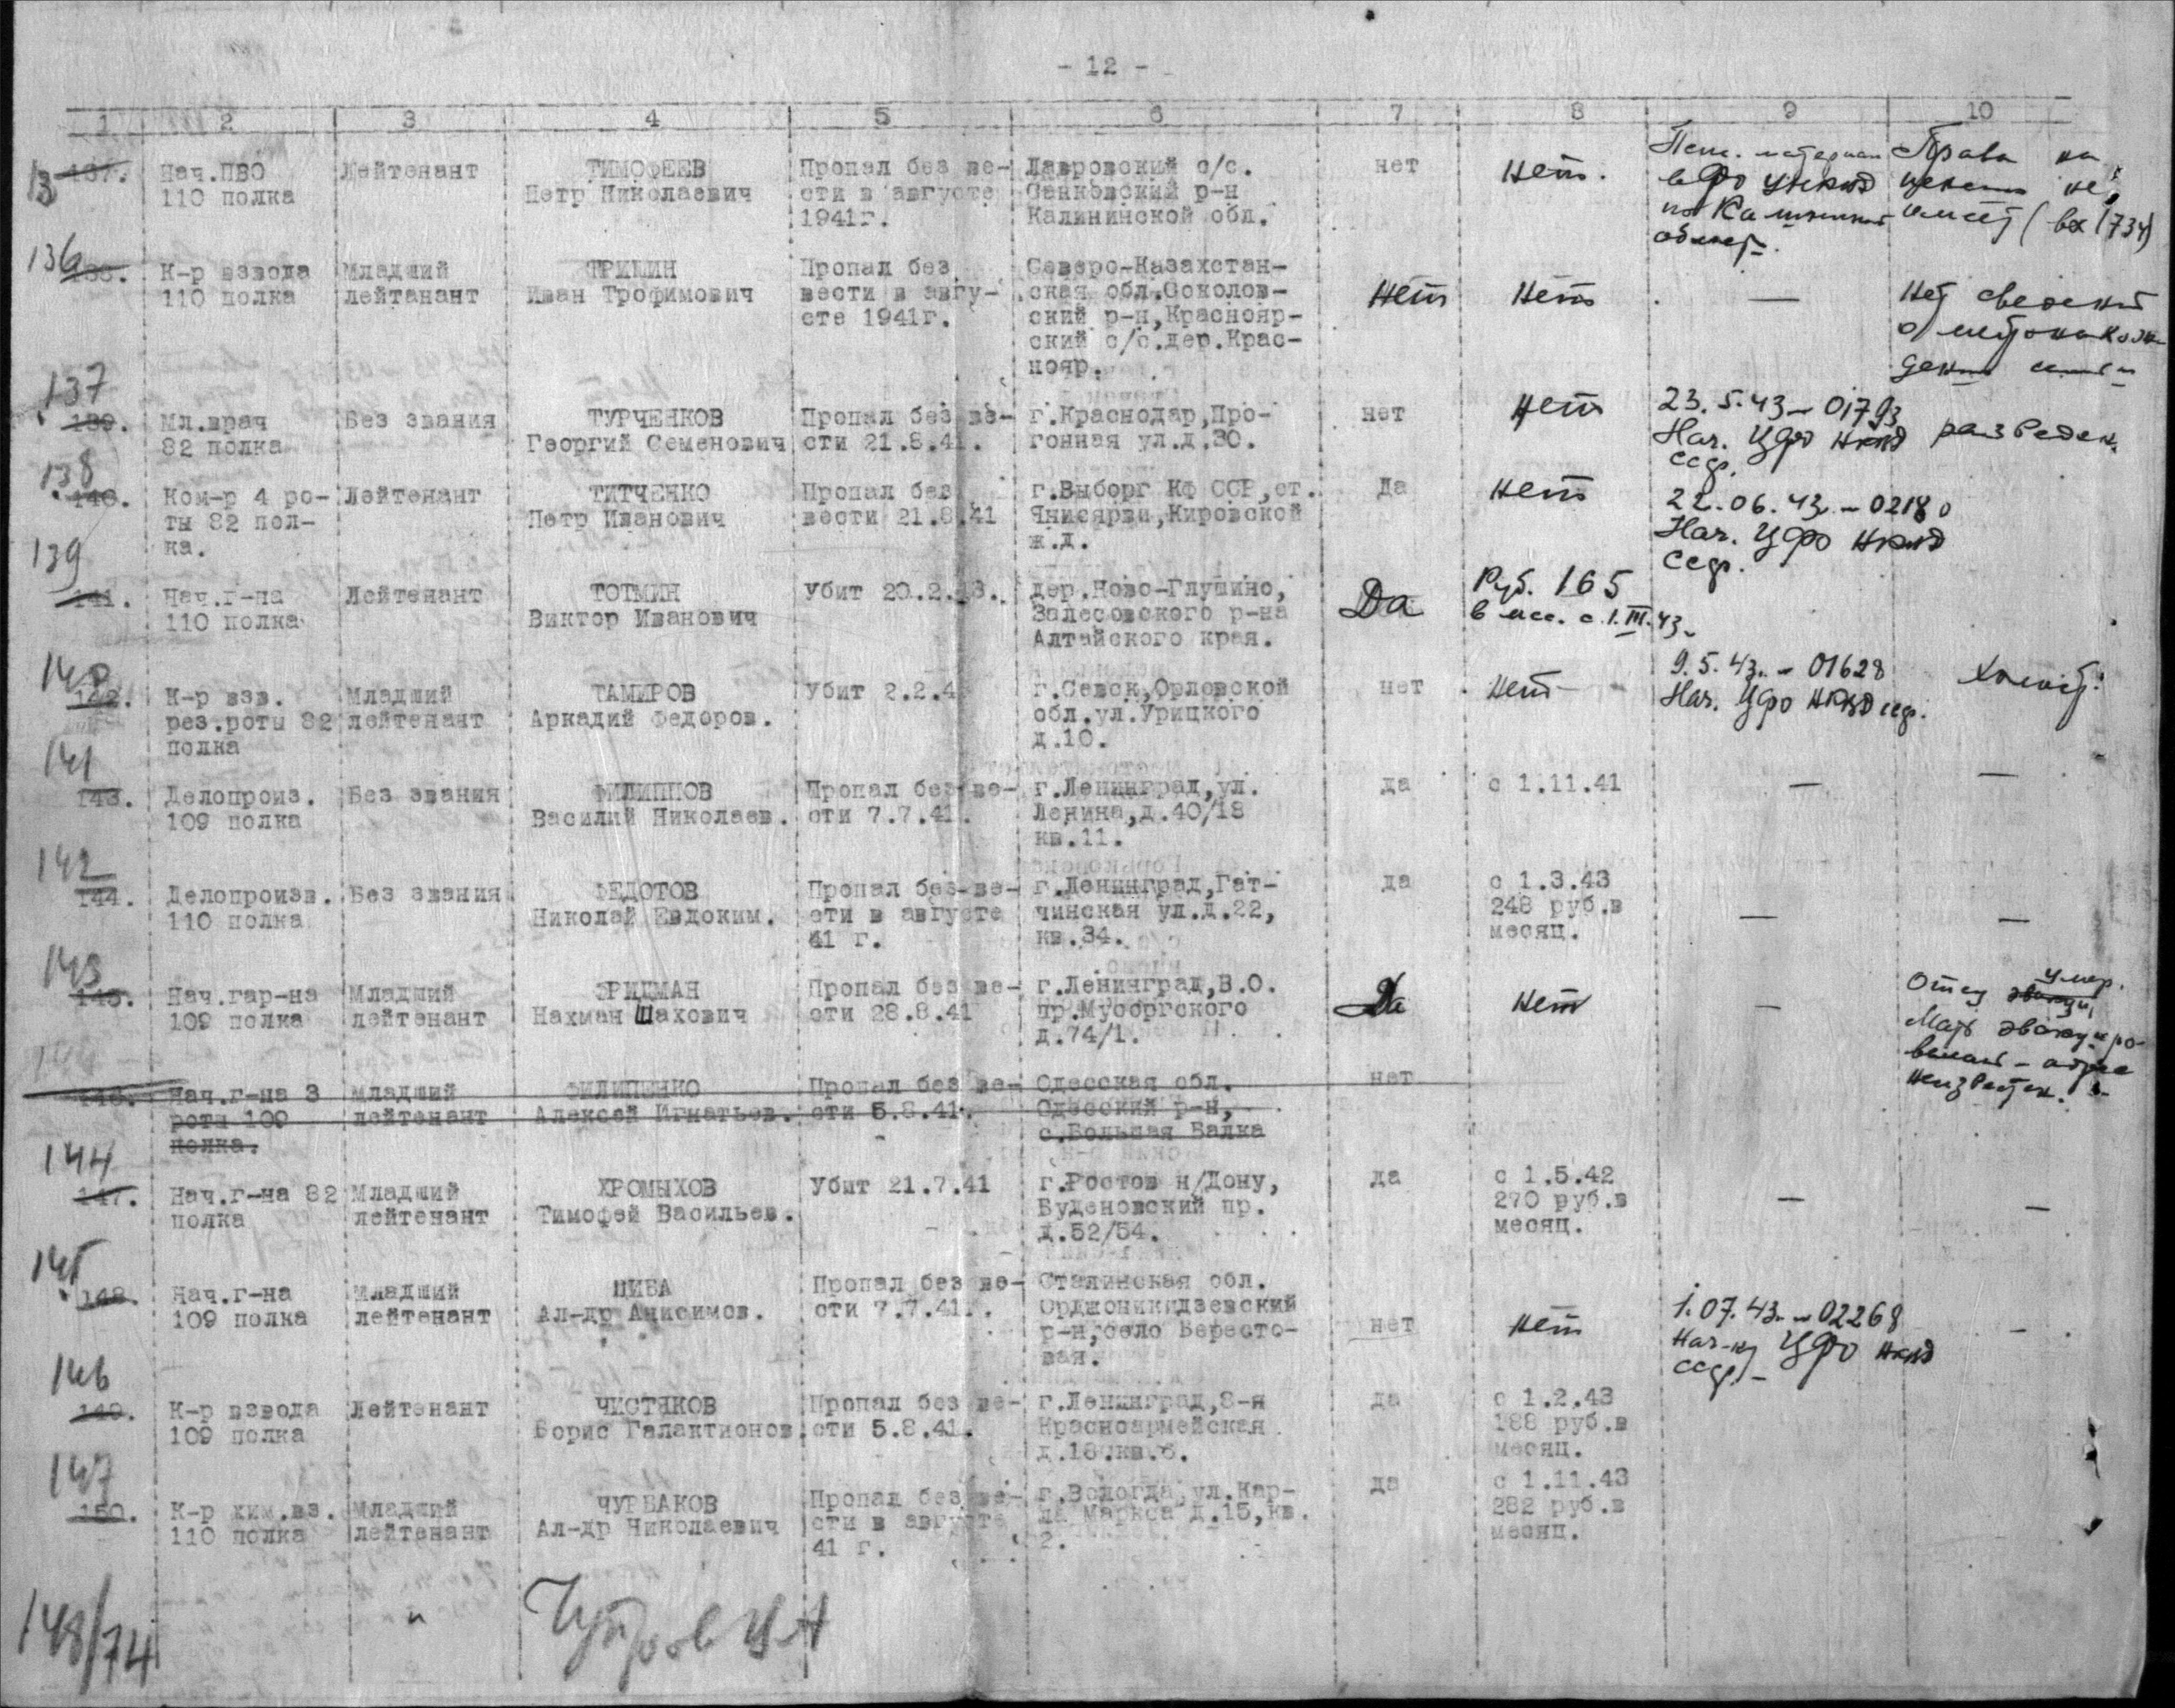 - 12 -
1 2 3 4 5 6 7 8 9 10
13 137. Нач.ПВО Лейтенант ТИМОФЕЕВ Пропал без ве- Лавровский с/с. нет Нет.
110 полка Петр Николаевич сти в августе Санковский р-н
1941г. Калининской обл.
Права на
в ФО УНКВД
по
имеет (вх 1734)
136 138. К-р взвода Младший ГРИШИН Пропал без Северо-Казахстан-
110 полка лейтанант Иван Трофимович вести в авгу- ская обл.Соколов- Нет Нет —
сте 1941г. ский р-н,Краснояр-
ский с/с.дер.Крас-
нояр.
Нет сведений
о местонахож
дении семьи
137
139. Мл.врач Без звания ТУРЧЕНКОВ Пропал без ве- г.Краснодар,Про- нет Нет 23.5.43 - 01793
82 полка Георгий Семенович сти 21.8.41. гонная ул.д.30. Нач. ЦФО НКВД разведен.
ссср.
138
140. Ком-р 4 ро- Лейтенант ТИТЧЕНКО Пропал без г.Выборг КФ ССР,ст. Да Нет 22.06.43. - 02180
ты 82 пол- Петр Иванович вести 21.8.41 Янисярви,Кировской Нач. ЦФО НКВД
ка. ж.д. ссср.
139
141. Нач.г-на Лейтенант ТОТМИН Убит 20.2.43. дер.Ново-Глушино, Да Руб. 165
110 полка Виктор Иванович Залесовского р-на в мес. с 1.III.43.
Алтайского края.
140
142. К-р взв. Младший ТАМИРОВ Убит 2.2.4 г.Севск,Орловской нет Нет 9.5.43. - 01628 Холост.
рез.роты 82 лейтенант Аркадий Федоров. обл.ул.Урицкого Нач. ЦФО НКВД ссср.
полка д.10.
141
143. Делопроиз. Без звания ФИЛИППОВ Пропал без ве- г.Ленинград,ул. да с 1.11.41 — —
109 полка Василий Николаев. сти 7.7.41. Ленина,д.40/18
кв.11.
142
144. Делопроизв. Без звания ФЕДОТОВ Пропал без ве- г.Ленинград,Гат- да с 1.3.43
110 полка Николай Евдоким. сти в августе чинская ул.д.22, 248 руб.в — —
41 г. кв.34. месяц.
143
145. Нач.гар-на Младший ФРИДМАН Пропал без ве- г.Ленинград,В.О. Да Нет —
109 полка лейтенант Нахман Шахович сти 28.8.41 пр.Мусоргского
д.74/1.
умер.
Отец эвакуи,
Мать эвакуиро-
вана - адрес
неизвестен.
144
146. Нач.г-на 3 Младший ФИЛИПЕНКО Пропал без ве- Одесская обл. нет
роты 109 лейтенант Алексей Игнатьев. сти 5.8.41. Одесский р-н,
полка. с.Большая Балка
144
147. Нач.г-на 82 Младший ХРОМЫХОВ Убит 21.7.41 г.Ростов н/Дону, да с 1.5.42
полка лейтенант Тимофей Васильев. Буденовский пр. 270 руб.в — —
д.52/54. месяц.
145
148. Нач.г-на Младший ШИБА Пропал без ве- Сталинская обл.
109 полка лейтенант Ал-др Анисимов. сти 7.7.41г. Орджоникидзевский
р-н,село Бересто- нет Нет —
вая.
1.07.43. - 02268
Нач-ку ЦФО НКВД
ссср -
146
149. К-р взвода Лейтенант ЧИСТЯКОВ Пропал без ве- г.Ленинград,8-я да с 1.2.43
109 полка Борис Галактионов. сти 5.8.41. Красноармейская 188 руб.в
д.18.кв.8. месяц.
147
150. К-р хим.вз. Младший ЧУРБАКОВ Пропал без ве- г.Вологда,ул.Кар- да с 1.11.43
110 полка лейтенант Ал-др Николаевич сти в августе ла Маркса д.15,кв. 282 руб.в
41 г. 2. месяц.
148/74 "